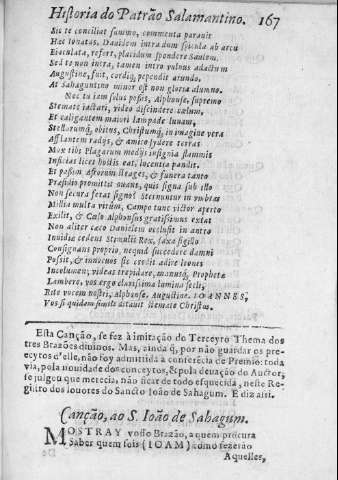 Historia do Patrão Salamantino. 167
Sic te conciliat summo, commenta parauit
Hac Ionatas. Dauidem intra dum spicula ab arcu
Eiaculata, refert, placidum spondere Saulem.
Sed te non intra, tamen intro vulnus adactum
Augustine, fuit, cordiq, pependit arundo.
At Sahaguntino minor est non gloria alumno.
Nec tu iam solus potes, Alphonse, supremo
Stemate iactari, video discindere cælum,
Et caligantem maiori lampade lunam,
Stellorumq, obitus, Christumq, in imagine vera
Afflantem radys, & amico sydere terras
Mox tibi Plagarum medijs insignia flammis
Inscias licet hostis eat, lucentia pandit.
Et passim Astrorum strages, & funera tanto
Præsidio promittit ouans, quis signa sub isto
Non secura ferat signo? Sternuntur in vmbras
Millia multa virûm, Campo tunc victor aperto
Exilit, & Cælo Alphonsus gratissimus extat
Non aliter caco Danielem occlusit in antro
Inuidia cedens Stimulis Rex, saxa sigillo
Consignans proprio, nequid succedere damni
Possit, & innocuus sic credit adire leones
Incolumen; videas trepidare, manusq, Prophetæ
Lambere, vos ergo clarissima lumina secli,
Rite vocem nostri, Alphonse, Augustine, IOANNES,
Vos si quidem simili ditauit stemate Christus.
Esta Canção, se fez à imitação do Terceyro Thema dos
tres Brazões diuinos. Mas, ainda q, por não guardar os pre-
ceytos d'elle, não foy admittida à conferécia de Premio: toda
via, pola nouidade dos conceytos, & pola deuação do Auctor,
se julgou que merecia, não ficar de todo esquecida, neste Re-
gisto dos louores do Sancto Ioão de Sahagum. E diz assi.
Canção, ao S. Ioão de Sahagum.
MOSTRAY vosso Brazão, a quem procura
Saber quem sois (IOAM) como fezerão
Aquelles,